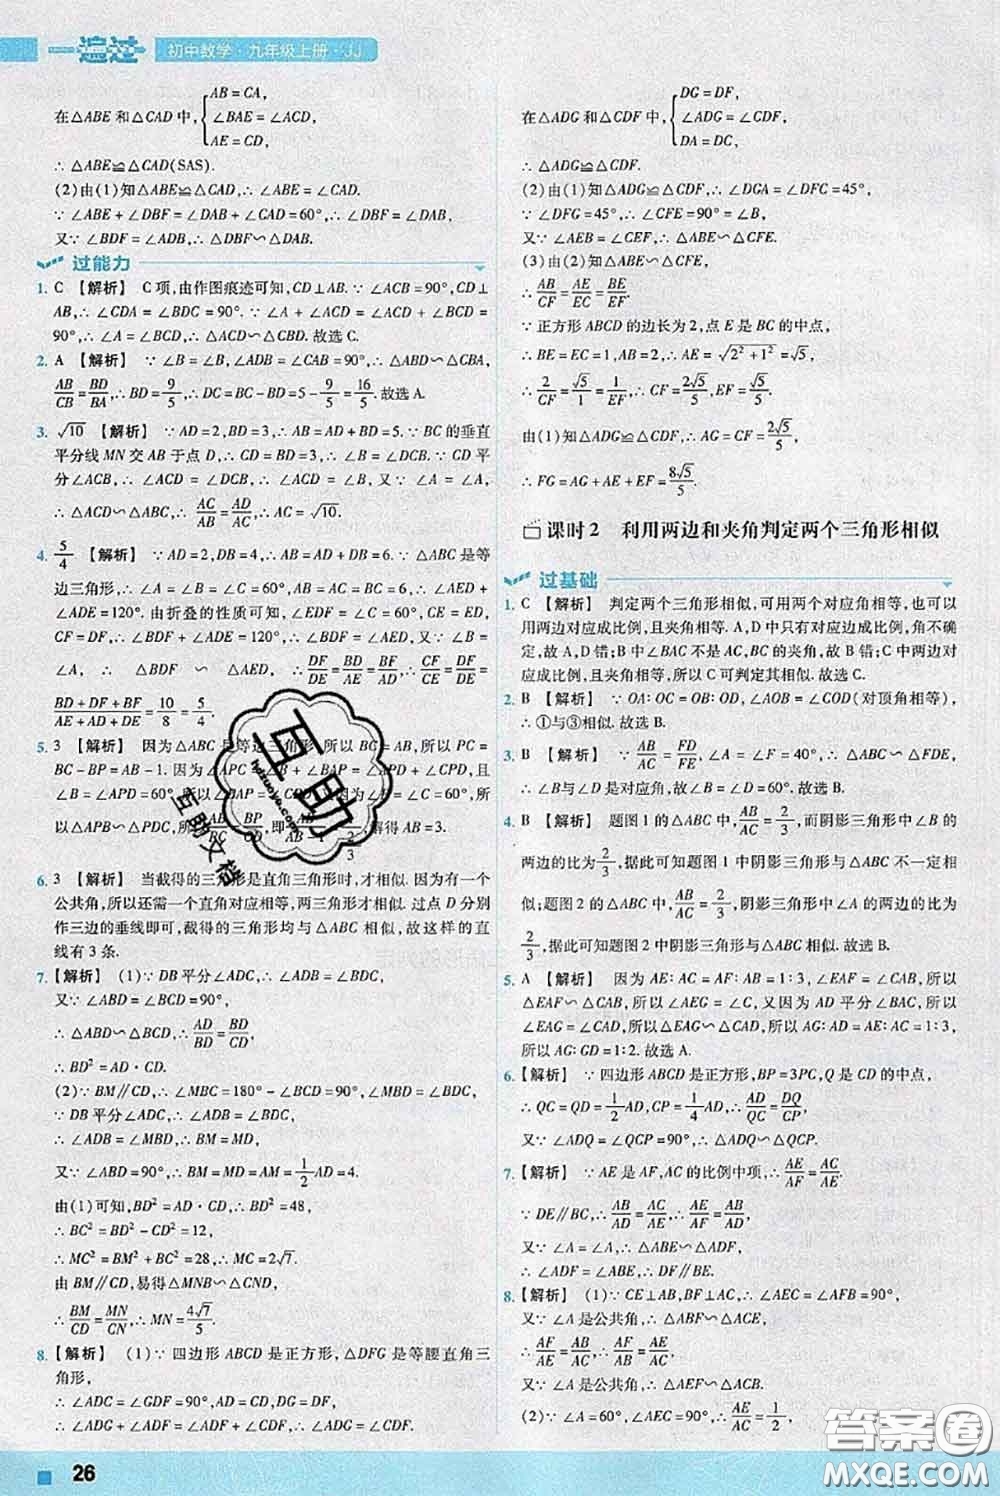 一遍过 初中数学·九年级上册·JJ
在△ABE和△CAD中,{AB=CA,
∠BAE=∠ACD,
AE=CD,
∴△ABE≌△CAD(SAS).
(2)由(1)知△ABE≌△CAD,∴∠ABE=∠CAD.
∵∠ABE+∠DBF=∠DAB+∠CAD=60°,∴∠DBF=∠DAB,
又∵∠BDF=∠ADB,∴△DBF∽△DAB.
过能力
1. C 【解析】 C项,由作图痕迹可知,CD⊥AB.∵∠ACB=90°,CD⊥
AB,∴∠CDA=∠BDC=90°.∵∠A+∠ACD=∠ACD+∠BCD=
90°,∴∠A=∠BCD,∴△ACD∽△CBD.故选C.
2. A 【解析】 ∵∠B=∠B,∠ADB=∠CAB=90°,∴△ABD∽△CBA,
∴AB/CB=BD/BA,∴BD=9/5,∴DC=BC-BD=5-9/5=16/5.故选A.
3. √10 【解析】 ∵AD=2,BD=3,∴AB=AD+BD=5.∵BC的垂直
平分线MN交AB于点D,∴CD=BD=3,∴∠B=∠DCB.∵CD平
分∠ACB,∴∠ACD=∠DCB=∠B.又∵∠A=∠A,
∴△ACD∽△ABC,∴AC/AB=AD/AC,∴AC=√10.
4. 5/4 【解析】 ∵AD=2,BD=4,∴AB=AD+DB=6.∵△ABC是等
边三角形,∴∠A=∠B=∠C=60°,AB=BC=AC,∴∠AED+
∠ADE=120°.由折叠的性质可知,∠EDF=∠C=60°,CE=ED,
CF=DF,∴∠BDF+∠ADE=120°,∴∠BDF=∠AED,又∵∠B=
∠A,∴△BDF∽△AED,∴DF/DE=BD/AE=BF/AD,∴CF/CE=DF/DE=
(BD+DF+BF)/(AE+AD+DE)=10/8=5/4.
5. 3 【解析】 因为△ABC是等边三角形,所以BC=AB,所以PC=
BC-BP=AB-1.因为∠APC=∠APD+∠CPD=∠B+∠BAP,且
∠B=∠APD=60°,所以∠BAP=∠CPD.又因为∠B=∠C=60°,所
以△APB∽△PDC,所以AB/PC=BP/CD,即AB/(AB-1)=1/(2/3),解得AB=3.
6. 3 【解析】 当截得的三角形是直角三角形时,才相似.因为有一个
公共角,所以还需一个直角对应相等,两三角形才相似.过点D分别
作三边的垂线即可,截得的三角形均与△ABC相似,故这样的直
线有3条.
7. 【解析】 (1)∵DB平分∠ADC,∴∠ADB=∠CDB.
又∵∠ABD=∠BCD=90°,
∴△ABD∽△BCD,∴AD/BD=BD/CD,
∴BD²=AD·CD.
(2)∵BM∥CD,∴∠MBC=180°-∠BCD=90°,∠MBD=∠BDC.
∵DB平分∠ADC,∴∠ADB=∠BDC,
∴∠ADB=∠MBD,∴BM=MD.
又∵∠ABD=90°,∴BM=MD=MA=1/2AD=4.
由(1)可知,BD²=AD·CD,∴BD²=48,
∴BC²=BD²-CD²=12,
∴MC²=BM²+BC²=28,∴MC=2√7.
由BM∥CD,易得△MNB∽△CND,
∴BM/CD=MN/CN,∴MN=4√7/5.
8. 【解析】 (1)∵四边形ABCD是正方形,△DFG是等腰直角三
角形,
∴∠ADC=∠GDF=90°,AD=CD,DG=DF,
∴∠ADG+∠ADF=∠ADF+∠CDF,∴∠ADG=∠CDF.
在△ADG和△CDF中,{DG=DF,
∠ADG=∠CDF,
DA=DC,
∴△ADG≌△CDF.
(2)由(1)知△ADG≌△CDF,∴∠DGA=∠DFC=45°,
∵∠DFG=45°,∴∠CFE=90°=∠B,
又∵∠AEB=∠CEF,∴△ABE∽△CFE.
(3)由(2)知△ABE∽△CFE,
∴AB/CF=AE/EC=BE/EF.
∵正方形ABCD的边长为2,点E是BC的中点,
∴BE=EC=1,AB=2,∴AE=√(2²+1²)=√5,
∴2/CF=√5/1=1/EF,∴CF=2√5/5,EF=√5/5.
由(1)知△ADG≌△CDF,∴AG=CF=2√5/5,
∴FG=AG+AE+EF=8√5/5.
课时2 利用两边和夹角判定两个三角形相似
过基础
1. C 【解析】 判定两个三角形相似,可用两个对应角相等,也可以
用两边对应成比例,且夹角相等.A,D中只有对应边成比例,角不确
定,故A,D错;B中∠BAC不是AC,BC的夹角,故B错;C中两边对
应成比例,且夹角相等,所以C可判定其相似.故选C.
2. B 【解析】 ∵OA:OC=OB:OD,∠AOB=∠COD(对顶角相等),
∴①与③相似.故选B.
3. B 【解析】 ∵AB/AC=FD/FE,∠A=∠F=40°,∴△ABC∽△FDE,
∴∠B与∠D是对应角,故∠B=∠D.故选B.
4. B 【解析】 题图1的△ABC中,AB/AC=2/3,而阴影三角形中∠B的
两边的比为2/3,据此可知题图1中阴影三角形与△ABC不一定相
似;题图2的△ABC中,AB/AC=2/3,阴影三角形中∠A的两边的比为
2/3,据此可知题图2中阴影三角形与△ABC相似.故选B.
5. A 【解析】 因为AF:AC=AE:AB=1:3,∠EAF=∠CAB,所以
△EAF∽△CAB,所以∠AEG=∠C,又因为AD平分∠BAC,所以
∠EAG=∠CAD,所以△EAG∽△CAD,所以AG:AD=AE:AC=1:3,
所以AG:GD=1:2.故选A.
6. 【解析】 ∵四边形ABCD是正方形,BP=3PC,Q是CD的中点,
∴QC=QD=1/2AD,CP=1/4AD,∴AD/QC=DQ/CP,
又∵∠ADQ=∠QCP=90°,∴△ADQ∽△QCP.
7. 【解析】 ∵AE是AF,AC的比例中项,∴AE/AF=AC/AE.
∵DE∥BC,∴AB/AD=AC/AE,∴AE/AF=AB/AD,
又∵∠A=∠A,∴△ABE∽△ADF,
∴∠ADF=∠ABE,∴DF∥BE.
8. 【解析】 (1)∵CE⊥AB,BF⊥AC,∴∠AEC=∠AFB=90°,
又∵∠A是公共角,∴△ABF∽△ACE,
∴AB/AC=AF/AE,∴AB/AF=AC/AE.
又∵∠A是公共角,∴△AEF∽△ACB.
(2)∵∠A=60°,∠AEC=90°,∴AE/AC=1/2,
26
互助
hdzuoye.com
互助文档
答案圈
MXQE.COM